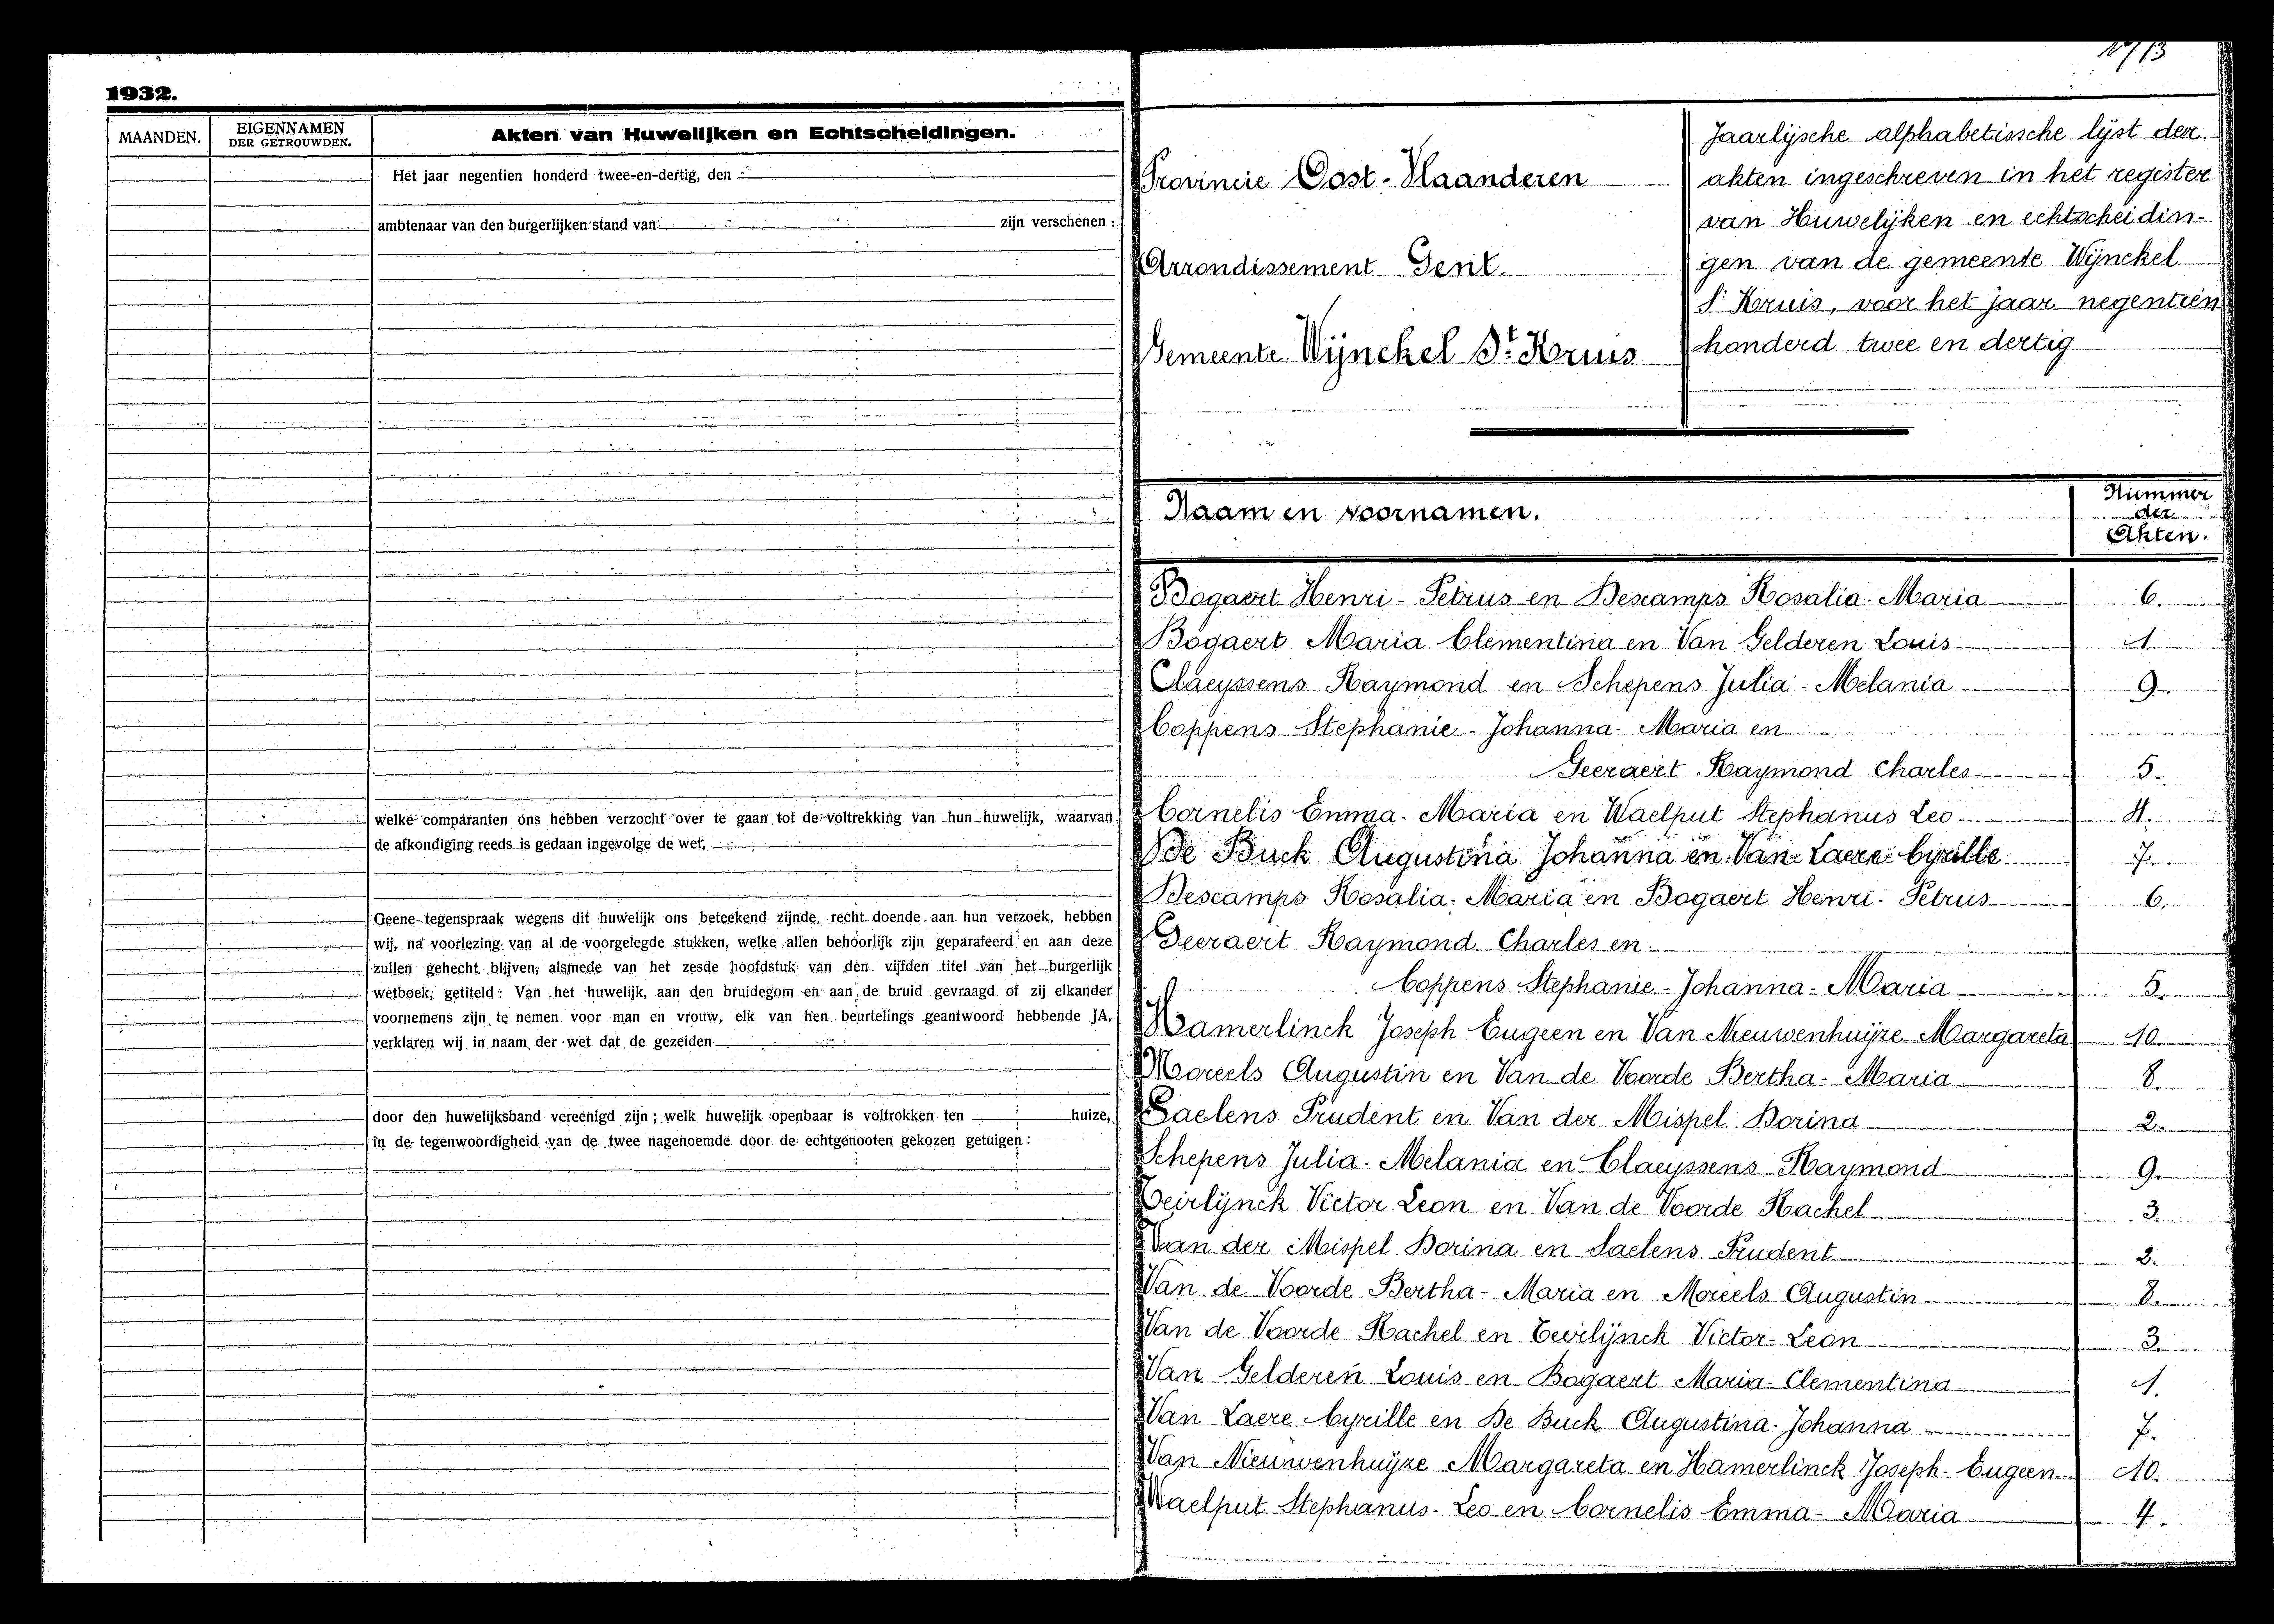 1932.
MAANDEN.
EIGENNAMEN
DER GETROUWDEN.
Akten van Huwelijken en Echtscheidingen.
Het jaar negentien honderd twee-en-dertig, den
ambtenaar van den burgerlijken stand van zijn verschenen :
welke comparanten ons hebben verzocht over te gaan tot de voltrekking van hun huwelijk, waarvan
de afkondiging reeds is gedaan ingevolge de wet,
Geene tegenspraak wegens dit huwelijk ons beteekend zijnde, recht doende aan hun verzoek, hebben
wij, na voorlezing van al de voorgelegde stukken, welke allen behoorlijk zijn geparafeerd en aan deze
zullen gehecht blijven, alsmede van het zesde hoofdstuk van den vijfden titel van het burgerlijk
wetboek; getiteld : Van het huwelijk, aan den bruidegom en aan de bruid gevraagd of zij elkander
voornemens zijn te nemen voor man en vrouw, elk van hen beurtelings geantwoord hebbende JA,
verklaren wij in naam der wet dat de gezeiden
door den huwelijksband vereenigd zijn ; welk huwelijk openbaar is voltrokken ten huize,
in de tegenwoordigheid van de twee nagenoemde door de echtgenooten gekozen getuigen :
Provincie Oost-Vlaanderen
Arrondissement Gent.
Gemeente Wijnckel St. Kruis
Jaarlijsche alphabetissche lijst der
akten ingeschreven in het register
van Huwelijken en echtscheidin-
gen van de gemeente Wijnckel
St Kruis, voor het jaar negentien
honderd twee en dertig
Naam en voornamen.
Nummer
der
Akten.
Bogaert Henri-Petrus en Descamps Rosalia-Maria 6.
Bogaert Maria Clementina en Van Gelderen Louis 1.
Claeyssens Raymond en Schepens Julia-Melania 9.
Coppens Stephanie-Johanna-Maria en
Geeraert Raymond Charles 5.
Cornelis Emma-Maria en Waelput Stephanus Leo 4.
De Buck Augustina Johanna en Van Laere Cyrille 7.
Descamps Rosalia-Maria en Bogaert Henri-Petrus 6.
Geeraert Raymond Charles en
Coppens Stephanie-Johanna-Maria 5.
Hamerlinck Joseph Eugeen en Van Nieuwenhuijze Margareta 10.
Moreels Augustin en Van de Voorde Bertha-Maria 8.
Saelens Prudent en Van der Mispel Dorina 2.
Schepens Julia-Melania en Claeyssens Raymond 9.
Teirlijnck Victor Leon en Van de Voorde Rachel 3.
Van der Mispel Dorina en Saelens Prudent 2.
Van de Voorde Bertha-Maria en Moreels Augustin 8.
Van de Voorde Rachel en Teirlijnck Victor-Leon 3.
Van Gelderen Louis en Bogaert Maria-Clementina 1.
Van Laere Cyrille en De Buck Augustina-Johanna 7.
Van Nieuwenhuijze Margareta en Hamerlinck Joseph-Eugeen 10.
Waelput Stephanus-Leo en Cornelis Emma-Maria 4.